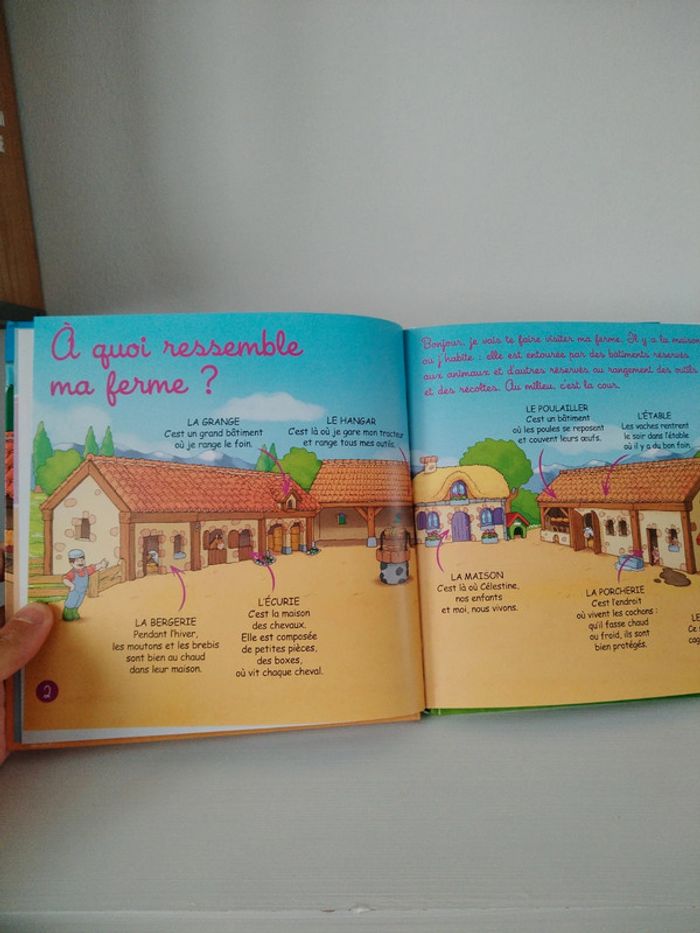 À quoi ressemble
ma ferme ?
LA GRANGE
C'est un grand bâtiment
où je range le foin.
LE HANGAR
C'est là où je gare mon tracteur
et range tous mes outils.
LA BERGERIE
Pendant l'hiver,
les moutons et les brebis
sont bien au chaud
dans leur maison.
L'ÉCURIE
C'est la maison
des chevaux.
Elle est composée
de petites pièces,
des boxes,
où vit chaque cheval.
2
Bonjour, je vais te faire visiter ma ferme. Il y a la maison
où j'habite : elle est entourée par des bâtiments réservés
aux animaux et d'autres réservés au rangement des outils
et des récoltes. Au milieu, c'est la cour.
LE POULAILLER
C'est un bâtiment
où les poules se reposent
et couvent leurs œufs.
L'ÉTABLE
Les vaches rentrent
le soir dans l'étable
où il y a du bon foin.
LA MAISON
C'est là où Célestine,
nos enfants
et moi, nous vivons.
LA PORCHERIE
C'est l'endroit
où vivent les cochons :
qu'il fasse chaud
ou froid, ils sont
bien protégés.
LE
Ce